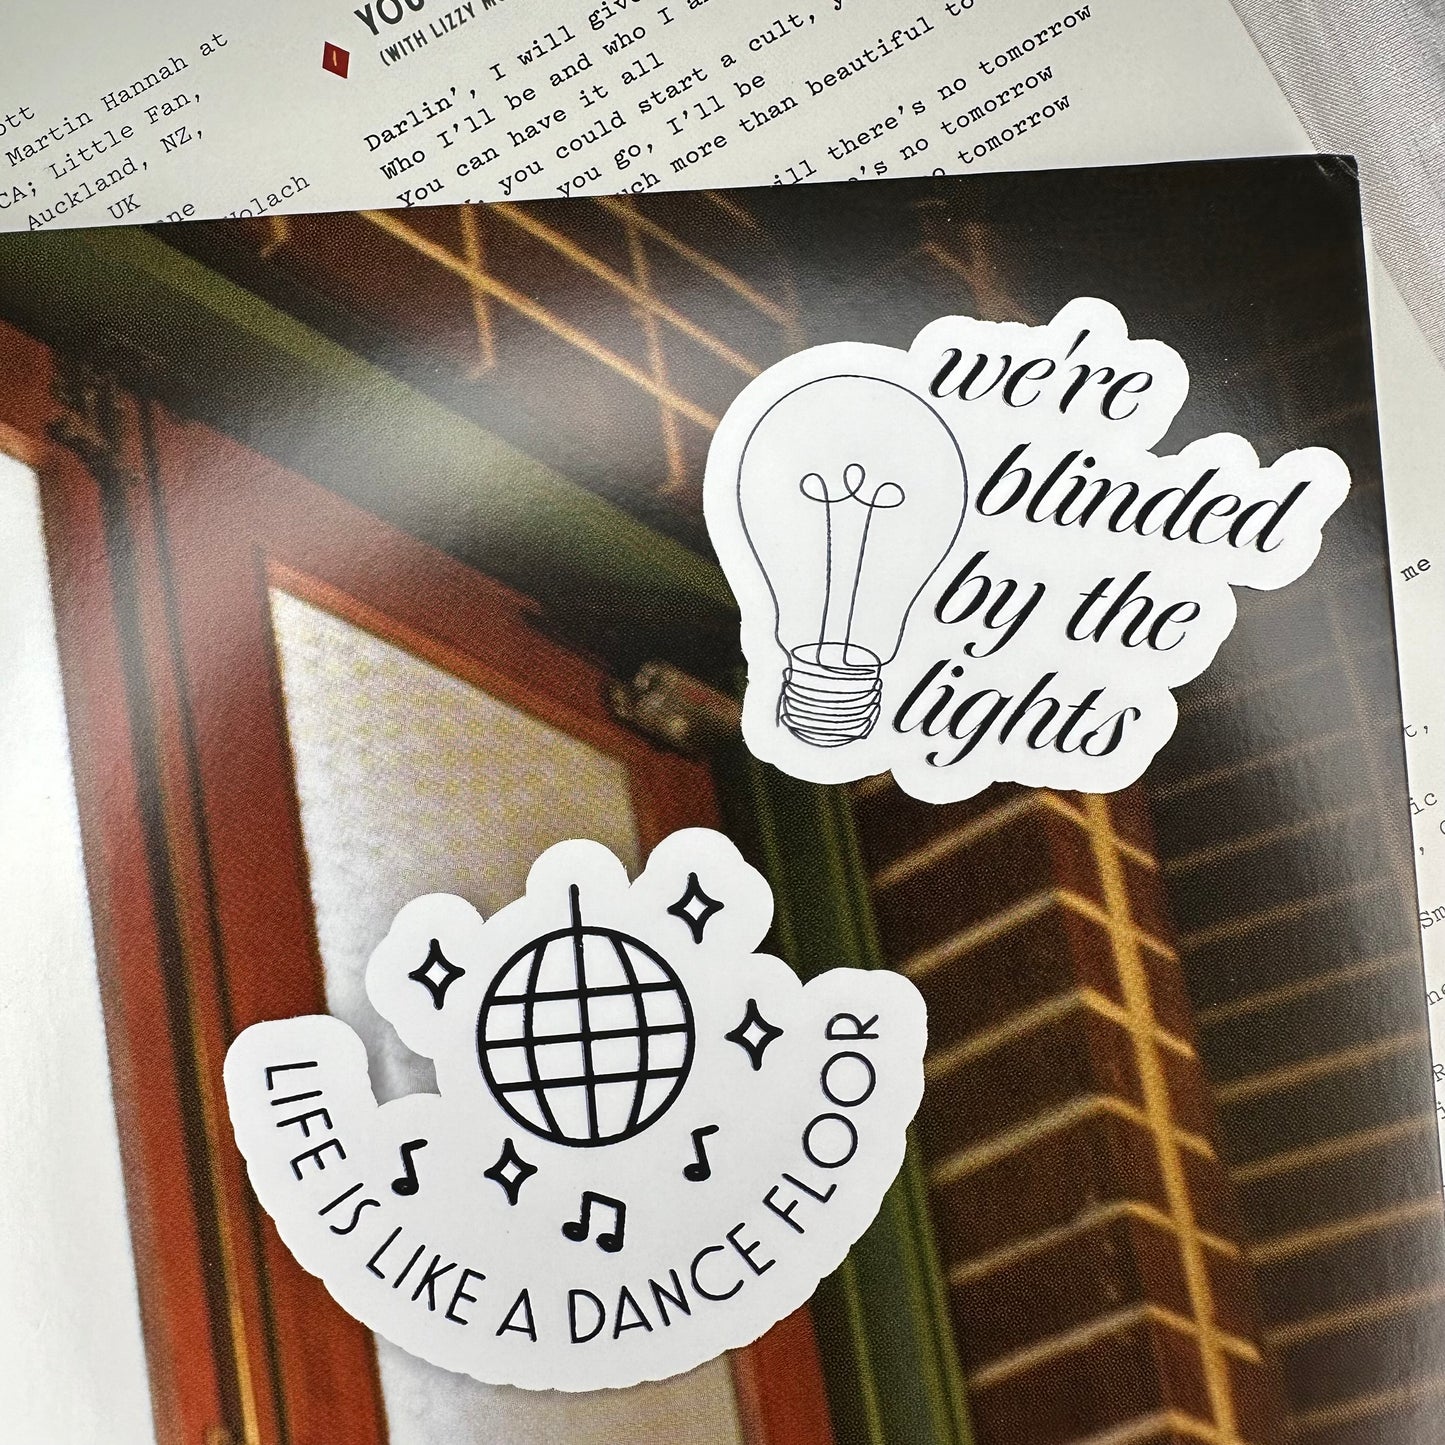 Martin Hannah at
CA; Little Fan,
Auckland, NZ,
UK
(WITH LIZZY
Darlin', I will give
Who I'll be and who I
You can have it all
you could start a cult,
you go, I'll be
more than beautiful to
there's no tomorrow
no tomorrow
tomorrow
we're
blinded
by the
lights
LIFE IS LIKE A DANCE FLOOR
me